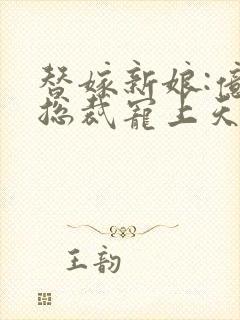 替嫁新娘:亿
总裁宠上天
王韵